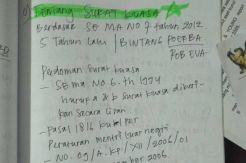 Tentang SURAT KUASA
Berdasar SE MA NO 7 tahun 2012
5 Tahun Lalu | BINTANG PDERBA
POB EVA
Pedoman Surat kuasa
- SE MA NO 6. th 1994
harus a & b surat kuasa diberi-
kan secara
- Pasal 1816 kuhper
Peraturan mentri luar negri
- NO. 09/A. KP/XII/2006/01
2006.